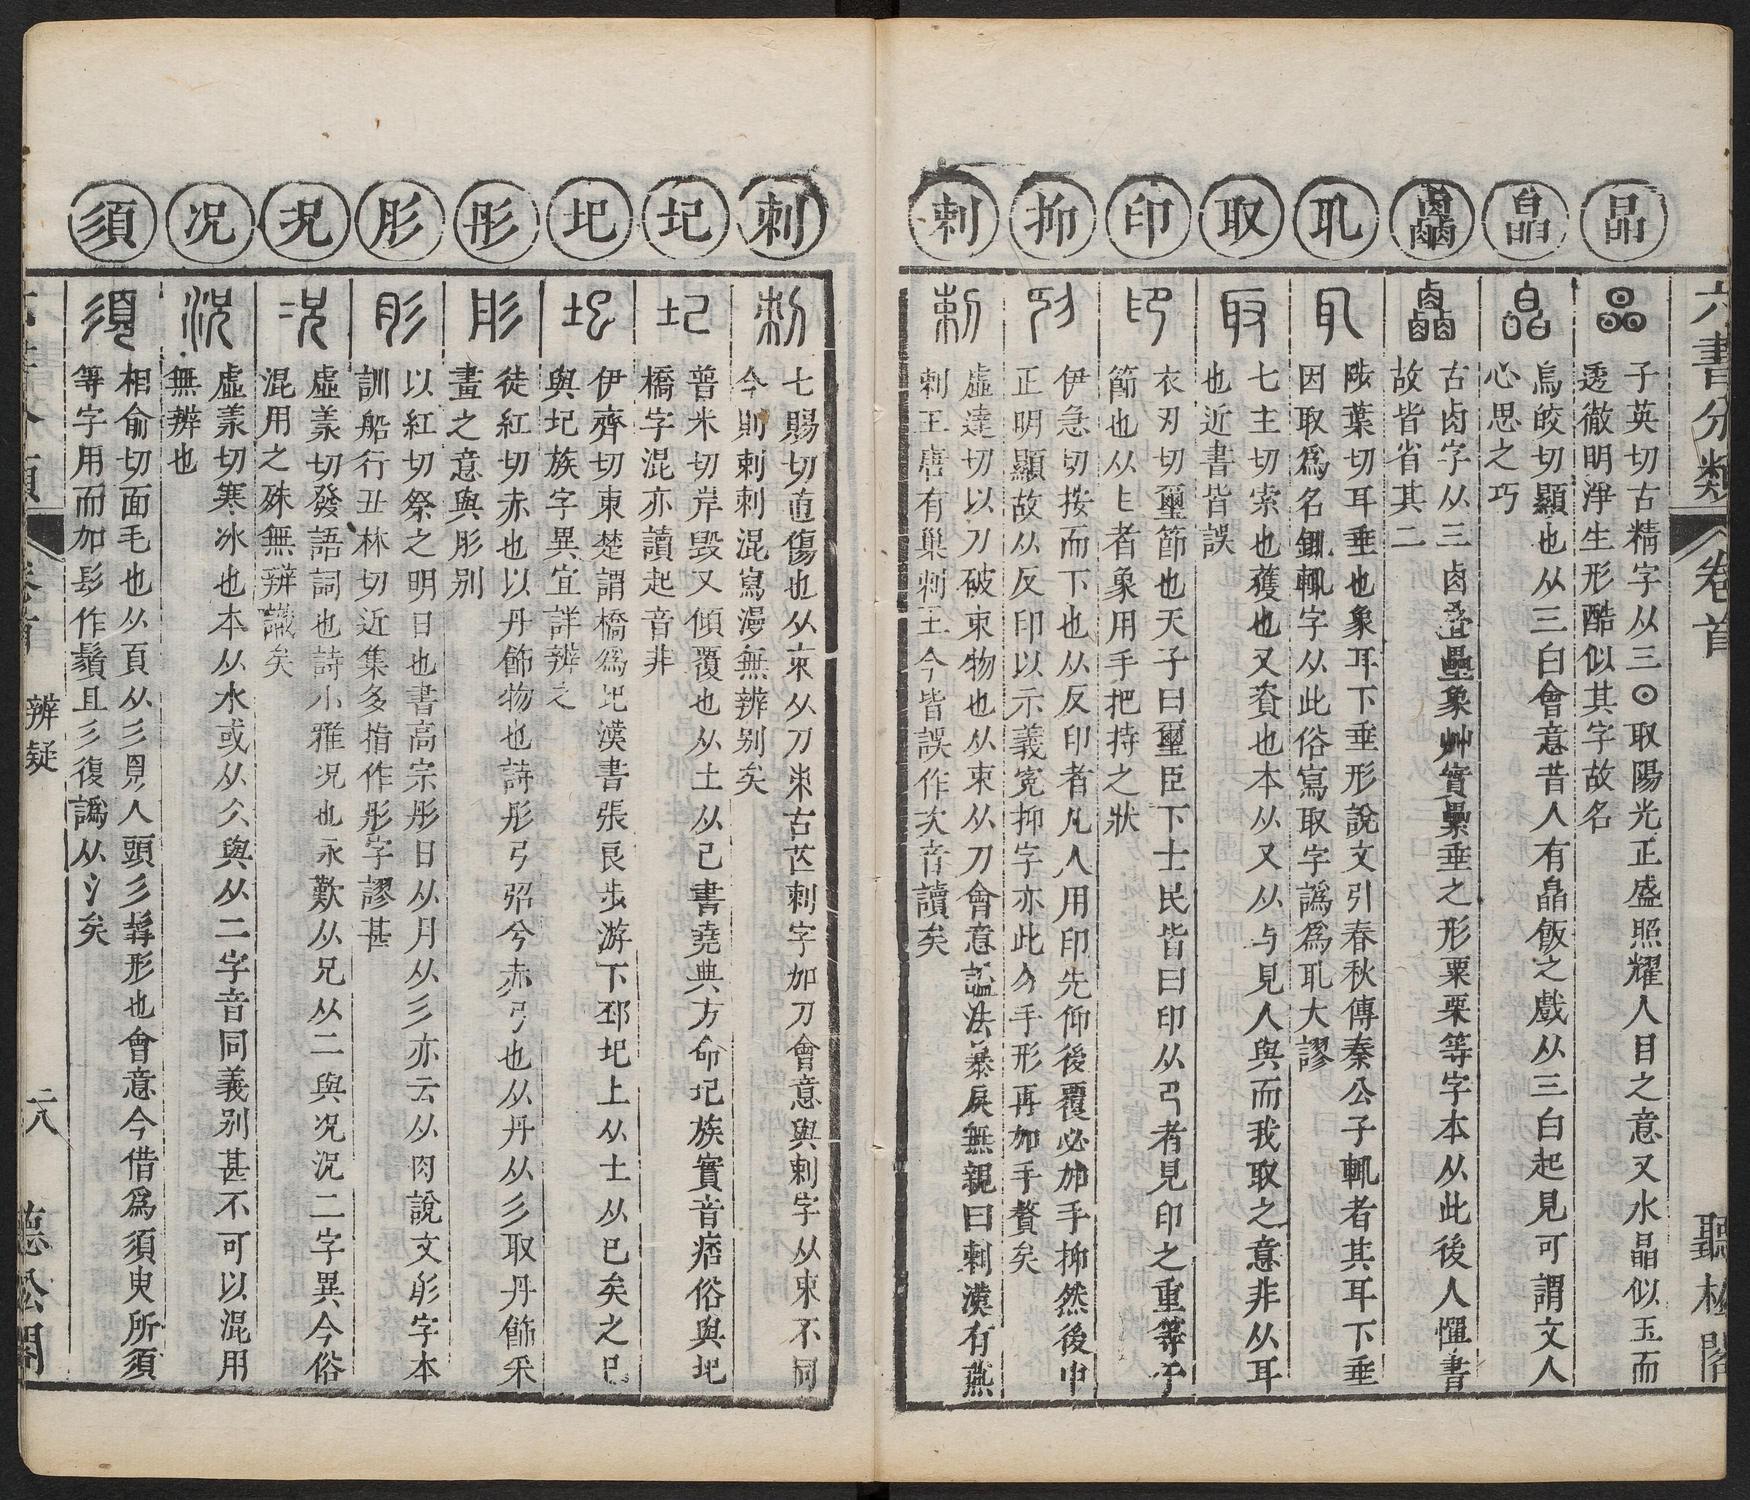 六書分類 卷首 聽松閣
晶
子英切古精字从三⊙取陽光正盛照耀人目之意又水晶似玉而
透徹明淨生形酷似其字故名
皛
烏皎切顯也从三白會意昔人有皛飯之戲从三白起見可謂文人
心思之巧
古卤字从三卤叠壘象艸實纍垂之形粟栗等字本从此後人憚書
故皆省其二
耴
陟葉切耳垂也象耳下垂形說文引春秋傳秦公子輒者其耳下垂
因取爲名鉏輒字从此俗寫取字譌爲耴大謬
取
七主切索也獲也又資也本从又从与見人與而我取之意非从耳
也近書皆誤
印
衣刃切璽節也天子曰璽臣下士民皆曰印从爪者見印之重等于
節也从㠯者象用手把持之狀
抑
伊急切按而下也从反印者凡人用印先仰後覆必加手抑然後申
正明顯故从反印以示義寃抑字亦此今手形再加手贅矣
剌
虛達切以刀破束物也从束从刀會意謚法暴戾無親曰剌漢有燕
剌王唐有巢剌王今皆誤作次音讀矣
刺
七賜切直傷也从朿从刀朿古芒刺字加刀會意與剌字从束不同
今則剌刺混寫漫無辨别矣
圮
普米切岸毀又傾覆也从土从己書堯典方命圮族實音痞俗與圯
橋字混亦讀起音非
圯
伊齊切東楚謂橋爲圯漢書張良步游下邳圯上从土从巳矣之巳
與圮族字異宜詳辨之
彤
徒紅切赤也以丹飾物也詩彤弓弨兮赤弓也从丹从彡取丹飾采
畫之意與肜别
肜
以紅切祭之明日也書高宗肜日从月从彡亦云从肉說文彤字本
訓船行丑林切近集多指作彤字謬甚
况
虛羕切發語詞也詩小雅况也永歎从兄从二與况況二字異今俗
混用之殊無辨識矣
况
虛羕切寒冰也本从水或从仌與从二字音同義别甚不可以混用
無辨也
須
相俞切面毛也从頁从彡見人頭彡髯形也會意今借爲須臾所須
等字用而加髟作鬚且彡復譌从氵矣
辨疑 二八 聽松閣